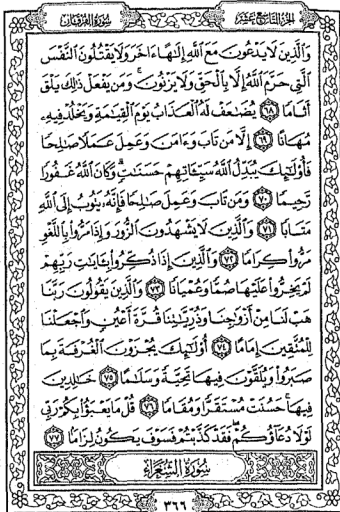 سورة الفرقان
الجزء التاسع عشر
وَالَّذِينَ لَا يَدْعُونَ مَعَ اللَّهِ إِلَٰهًا ءَاخَرَ وَلَا يَقْتُلُونَ النَّفْسَ
الَّتِي حَرَّمَ اللَّهُ إِلَّا بِالْحَقِّ وَلَا يَزْنُونَ ۚ وَمَن يَفْعَلْ ذَٰلِكَ يَلْقَ
أَثَامًا ٦٨ يُضَٰعَفْ لَهُ الْعَذَابُ يَوْمَ الْقِيَٰمَةِ وَيَخْلُدْ فِيهِۦ
مُهَانًا ٦٩ إِلَّا مَن تَابَ وَءَامَنَ وَعَمِلَ عَمَلًا صَٰلِحًا
فَأُو۟لَٰٓئِكَ يُبَدِّلُ اللَّهُ سَيِّـَٔاتِهِمْ حَسَنَٰتٍ ۗ وَكَانَ اللَّهُ غَفُورًا
رَّحِيمًا ٧٠ وَمَن تَابَ وَعَمِلَ صَٰلِحًا فَإِنَّهُۥ يَتُوبُ إِلَى اللَّهِ
مَتَابًا ٧١ وَالَّذِينَ لَا يَشْهَدُونَ الزُّورَ وَإِذَا مَرُّوا۟ بِاللَّغْوِ
مَرُّوا۟ كِرَامًا ٧٢ وَالَّذِينَ إِذَا ذُكِّرُوا۟ بِـَٔايَٰتِ رَبِّهِمْ
لَمْ يَخِرُّوا۟ عَلَيْهَا صُمًّا وَعُمْيَانًا ٧٣ وَالَّذِينَ يَقُولُونَ رَبَّنَا
هَبْ لَنَا مِنْ أَزْوَٰجِنَا وَذُرِّيَّٰتِنَا قُرَّةَ أَعْيُنٍ وَاجْعَلْنَا
لِلْمُتَّقِينَ إِمَامًا ٧٤ أُو۟لَٰٓئِكَ يُجْزَوْنَ الْغُرْفَةَ بِمَا
صَبَرُوا۟ وَيُلَقَّوْنَ فِيهَا تَحِيَّةً وَسَلَٰمًا ٧٥ خَٰلِدِينَ
فِيهَا ۚ حَسُنَتْ مُسْتَقَرًّا وَمُقَامًا ٧٦ قُلْ مَا يَعْبَؤُا۟ بِكُمْ رَبِّي
لَوْلَا دُعَآؤُكُمْ ۖ فَقَدْ كَذَّبْتُمْ فَسَوْفَ يَكُونُ لِزَامًا ٧٧
سورة الشعراء
٣٦٦